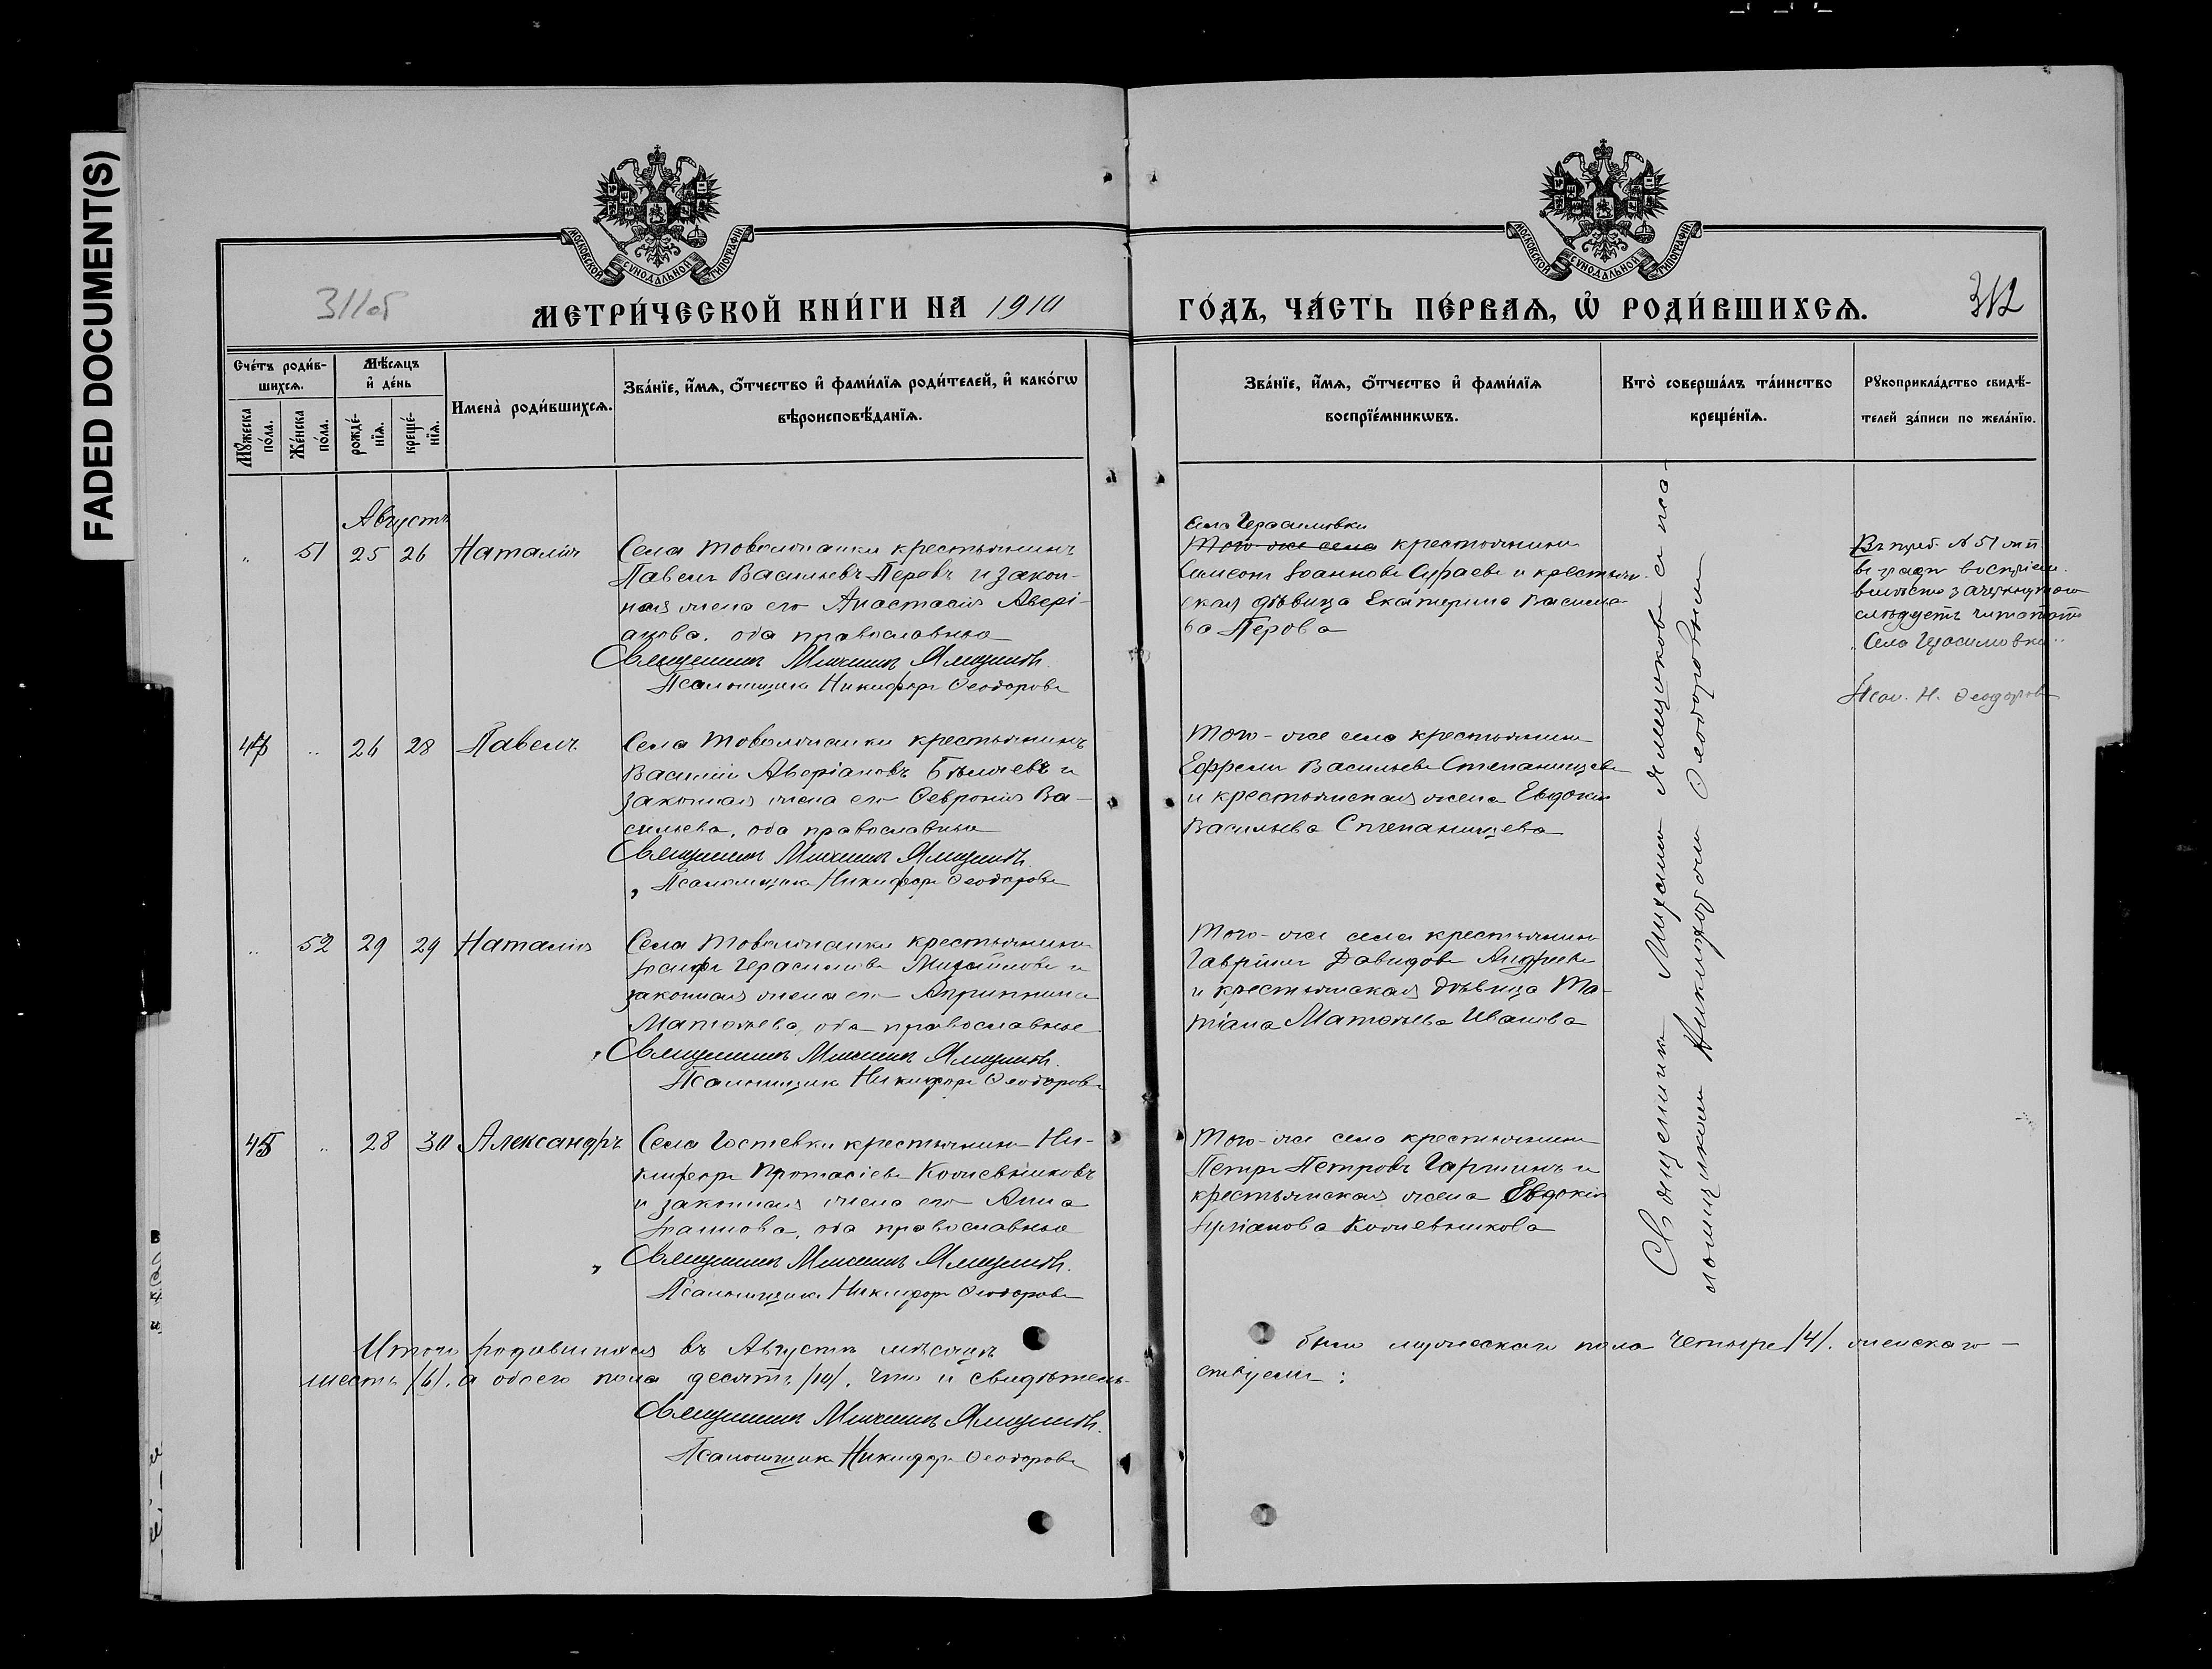 FADED DOCUMENT(S)
МОСКОВСКОЙ СѴНОДАЛЬНОЙ ТИПОГРАФІИ
МОСКОВСКОЙ СѴНОДАЛЬНОЙ ТИПОГРАФІИ
311об
МЕТРИ́ЧЕСКОЙ КНИ́ГИ НА 1910
ГО́ДЪ, ЧА́СТЬ ПЕ́РВАѦ, Ѡ҆ РОДИ́ВШИХСѦ.
312
Сче́тъ роди́в-
шихсѧ.
Мѣ́сѧцъ
и҆ де́нь
Мꙋ́жеска
по́ла.
Же́нска
по́ла.
рожде́-
нїѧ.
креще́-
нїѧ.
Имена̀ роди́вшихсѧ.
Зва́нїе, и҆́мѧ, ѻ҆́тчество и҆ фами́лїѧ роди́телей, и҆ како́гѡ
вѣроисповѣ́данїѧ.
Зва́нїе, и҆́мѧ, ѻ҆́тчество и҆ фами́лїѧ
воспрїе́мникѡвъ.
Кто̀ соверша́лъ та́инство
креще́нїѧ.
Рꙋкоприкла́дство свидѣ́-
телей за́писи по жела́нїю.
Августъ
51 25 26 Наталія
Села Товолжанки крестьянинъ
Павелъ Васильевъ Перовъ и закон-
ная жена его Анастасія Авері-
анова, оба православные
Священникъ Михаилъ Ямщиковъ.
Псаломщикъ Никифоръ Ѳеодоровъ
Села Герасимовки
Того-же села крестьянинъ
Симеонъ Іоанновъ и крестьян-
ская дѣвица Екатерина Василье-
ва Перова
№ 51
зачеркнутаго
слѣдуетъ читать
"Села Герасимовки"
Псал. Н. Ѳеодоровъ
26 28 Павелъ
Села Товолжанки крестьянинъ
Василій Аверіановъ Бѣляевъ и
законная жена его Ѳевронія Ва-
сильева, оба православные
Священникъ Михаилъ Ямщиковъ.
Псаломщикъ Никифоръ Ѳеодоровъ
Того-же села крестьянинъ
Ефремъ Васильевъ Степанищевъ
и крестьянская жена Евдокія
Васильева Степанищева
52 29 29 Наталія
Села Товолжанки крестьянинъ
Іосифъ Герасимовъ Михайловъ и
законная жена его Агриппина
Матѳѣева, оба православные
Священникъ Михаилъ Ямщиковъ.
Псаломщикъ Никифоръ Ѳеодоровъ
Того-же села крестьянинъ
Гавріилъ Давидовъ Андреевъ
и крестьянская дѣвица Та-
тіана Матѳѣева Иванова
45 28 30 Александръ
Села Гостевки крестьянинъ Ни-
кифоръ Протасіевъ Кожевниковъ
и законная жена его Анна
Іоаннова, оба православные
Священникъ Михаилъ Ямщиковъ.
Псаломщикъ Никифоръ Ѳеодоровъ
Того-же села крестьянинъ
Петръ Петровъ Гаршинъ и
крестьянская жена Евдокія
Кожевникова
Священникъ Михаилъ Ямщиковъ съ пса-
ломщикомъ Никифоромъ Ѳеодоровымъ
Итого родившихся въ Августѣ мѣсяцѣ
было мужескаго пола четыре /4/. женскаго –
шесть /6/. а обоего пола десять /10/. что и свидѣтель-
ствуемъ:
Священникъ Михаилъ Ямщиковъ.
Псаломщикъ Никифоръ Ѳеодоровъ